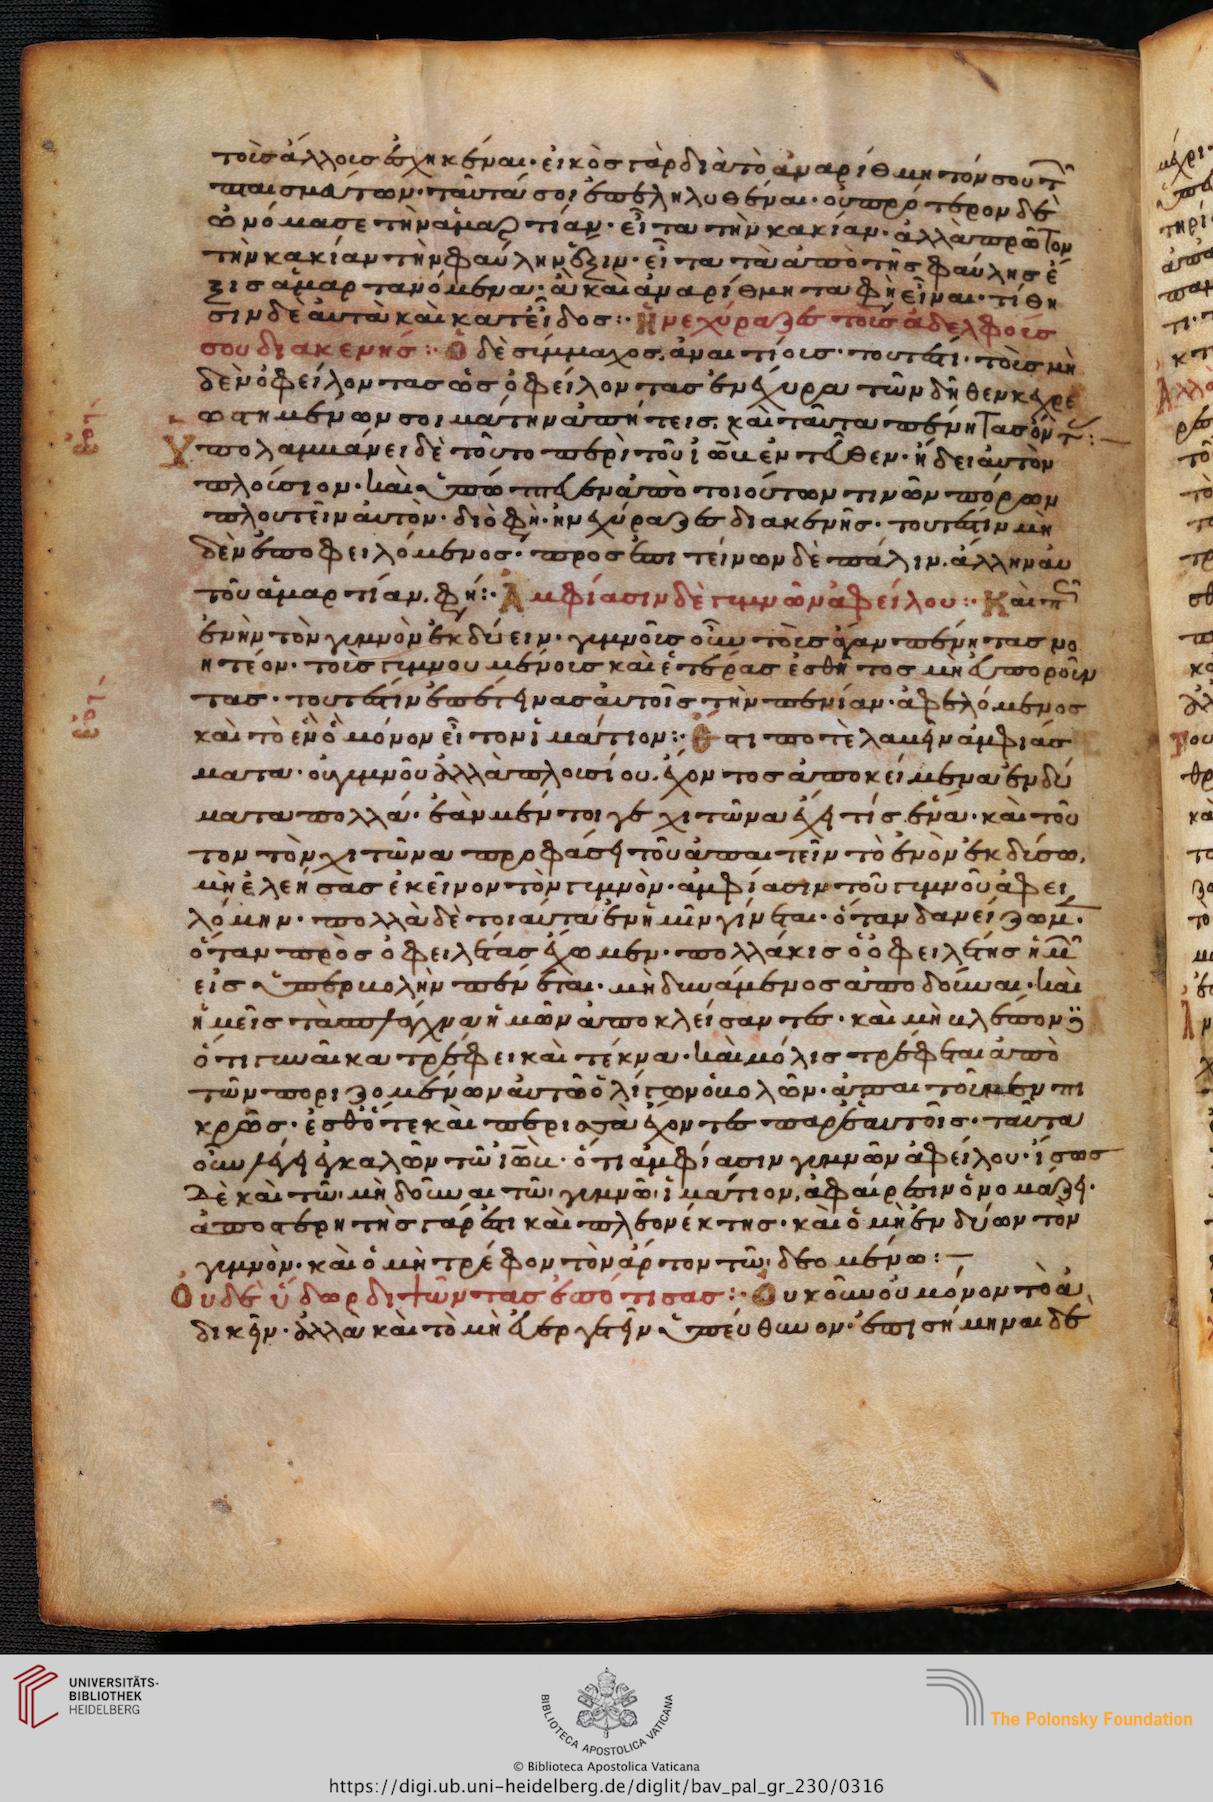 τοῖσ ἄλλοισ ἐσχηκέναι· εἰκὸσ γὰρ διὰ τὸ ἀναρίθμητόν σου τῶν
πταισμάτων· ταῦτά σοι ἐπεληλυθέναι· οὐ πρότερον δὲ
ὠνόμασε τὴν ἁμαρτίαν· εἶτα τὴν κακίαν· ἀλλὰ πρῶτον
τὴν κακίαν τὴν φαύλην ἕξιν· εἶτα τὰ ἀπὸ τῆσ φαύλησ ἕ
ξισ ἁμαρτανόμενα· ἃ καὶ ἀναρίθμητα φὴ εἶναι· τίθη
σιν δὲ αὐτὰ καὶ κατεῖδοσ:· Ἠνεχύραζεσ τοῖσ ἀδελφοῖσ
σου διακενῆσ:· Ὁ δὲ σύμμαχοσ, ἀναιτίοισ· τουτέστι· τοῖσ μη
δὲν ὀφείλοντασ ὡσ ὀφείλοντασ ἐνέχυρα τῶν δῆθεν κεχρε
ωστημένων σοι μάτην ἀπήτεισ, καὶ ταῦτα πένητασ ὄντασ:
Ὑπολαμβάνει δὲ τοῦτο περὶ τοῦ ἰὼβ ἐντεῦθεν· ἤδει αὐτὸν
πλούσιον· καὶ ὑπώπτευεν ἀπὸ τοιούτων τινῶν πόρων
πλουτεῖν αὐτὸν· διό φη· ἠνεχύραζεσ διακενῆσ· τουτέστιν μη
δὲν ἐποφειλόμενοσ· προσεπιτείνων δὲ πάλιν, ἄλλην αὐ
τοῦ ἁμαρτίαν, φή:· Ἀμφίασιν δὲ γυμνῶν ἀφείλου:· Καὶ
τὸν γυμνὸν ἐκδύειν· γυμνοῖσ οὖν τοῖσ ἄγαν πένητασ νο
ητέον· τοῖσ γυμνουμένοισ καὶ ἑτέρασ ἐσθῆτοσ μὴ εὐποροῦν
τασ· τουτέστιν ἐπέτεινασ αὐτοῖσ τὴν πενίαν· ἀφελόμενοσ
καὶ τὸ ἓν ὃ μόνον εἶτον ἱμάτιον:· Ἔστι ποτὲ λαβεῖν ἀμφιάσ
ματα· οὐ γυμνοῦ ἀλλὰ πλουσίου, ἔχοντοσ ἀποκείμενα ἐνδύ
ματα πολλά· ἐὰν μέν τοι γε χιτῶνα ἔχη τίσ ἕνα· καὶ τοῦ
τον τὸν χιτῶνα προφάσει τοῦ ἀπαιτεῖν τὸ ἐνὸν ἐκδύσω,
μὴ ἐλεήσασ ἐκεῖνον τὸν γυμνὸν· ἀμφίασιν τοῦ γυμνοῦ ἀφει
λόμην· πολλὰ δὲ τοιαῦτα ἐν ἡμῖν γίνεται· ὅταν δανείζωμεν·
ὅταν πρὸσ ὀφειλέτασ ἔχωμεν· πολλάκισ ὁ ὀφειλέτησ ἡμῶν
εἰσ ὑπερβολὴν πένεται· μὴ δυνάμενοσ ἀποδοῦναι· καὶ
ἡμεῖσ τὰ σπλάγχνα ἡμῶν ἀποκλείσαντεσ· καὶ μὴ βλέποντεσ
ὅτι γυναῖκα τρέφει καὶ τέκνα· καὶ μόλισ τρέφεται ἀπὸ
τῶν ποριζομένων αὐτῶ ὀλίγων ὀβολῶν· ἀπαιτοῦμεν πι
κρῶσ· ἐσθότε καὶ περισσὰ ἔχοντεσ παρ' ἑαυτοῖσ· ταῦτα
οὖν λέγει ἐγκαλῶν τῶ ἰώβ· ὅτι ἀμφίασιν γυμνῶν ἀφείλου· ἴσωσ
δὲ καὶ τῶ· μὴ δοῦναι τῶ· γυμνῶ· ἱμάτιον, ἀφαίρεσιν ὀνομάζει·
ἀποστερητὴσ γάρ ἐστι καὶ πλεονέκτησ· καὶ ὁ μὴ ἐνδύων τὸν
γυμνὸν· καὶ ὁ μὴ τρέφον τὸν ἄρτον τῶ· δεομένω:
Οὐδὲ ὕδωρ διψῶντασ ἐπότισασ:· Οὐκοῦν οὐ μόνον τὸ ἀ
δικεῖν· ἀλλὰ καὶ τὸ μὴ εὐεργετεῖν ὑπεύθυνον· ἐπισήμηναι δὲ
UNIVERSITÄTS-
BIBLIOTHEK
HEIDELBERG
BIBLIOTECA APOSTOLICA VATICANA
The Polonsky Foundation
© Biblioteca Apostolica Vaticana
https://digi.ub.uni-heidelberg.de/diglit/bav_pal_gr_230/0316